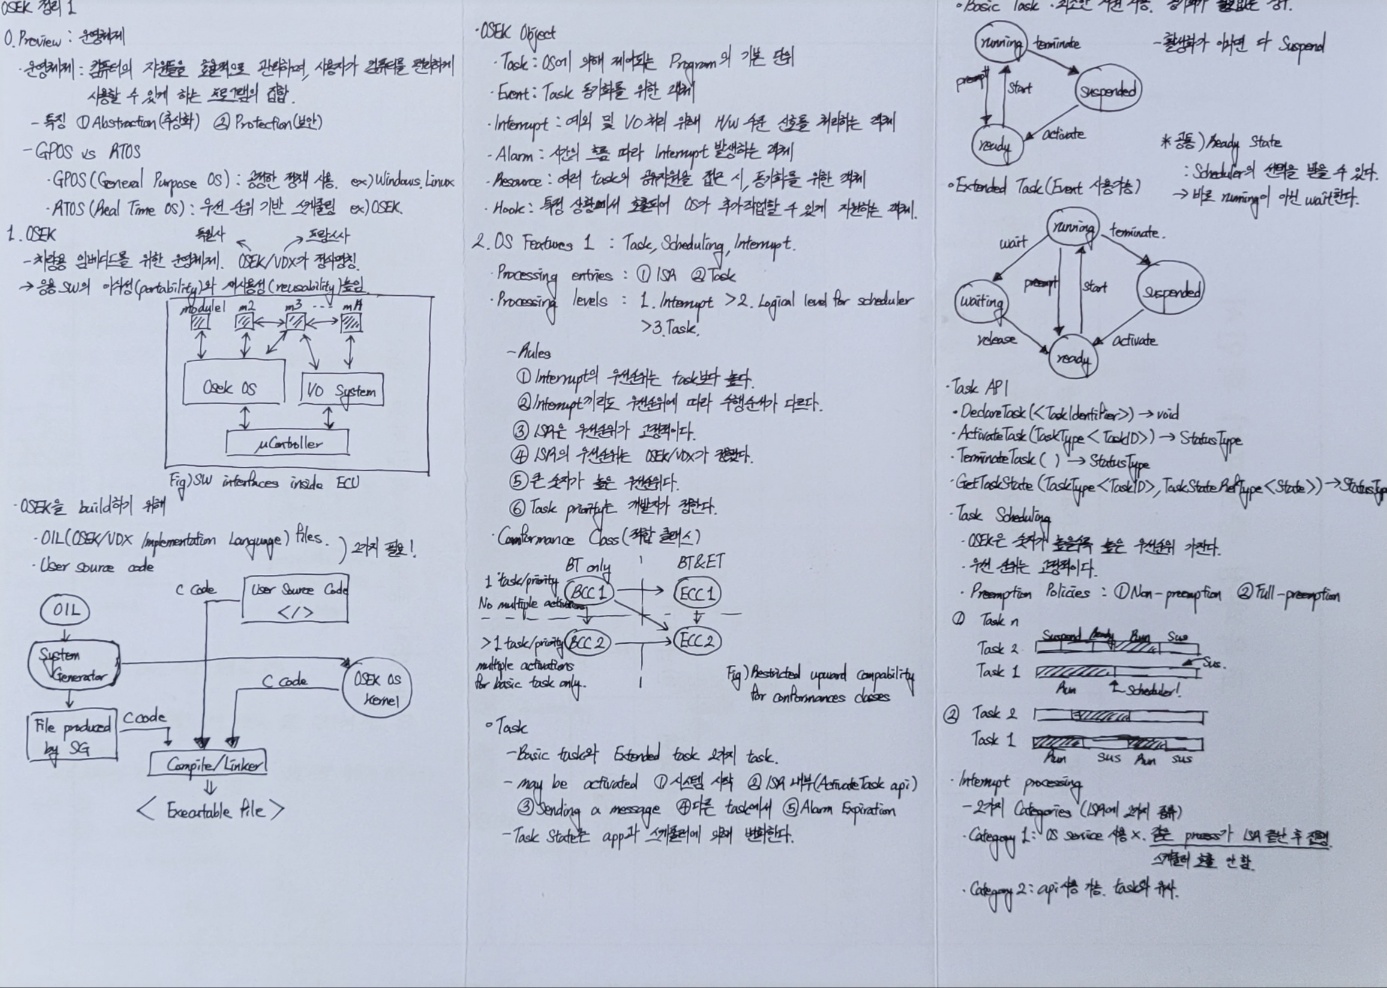 OSEK 정리 1
0. Preview : 운영체제
· 운영체제 : 컴퓨터의 자원들을 효율적으로 관리하며, 사용자가 컴퓨터를 편리하게
사용할 수 있게 하는 프로그램의 집합.
- 특징 ① Abstraction(추상화) ② Protection(보안)
- GPOS vs RTOS
· GPOS (General Purpose OS) : 공평한 정책 사용. ex) Windows, Linux
· RTOS (Real Time OS) : 우선 순위 기반 스케쥴링 ex) OSEK
1. OSEK
독일사 프랑스사
- 차량용 임베디드를 위한 운영체제. OSEK/VDX가 정식명칭.
→ 응용 SW의 이식성(portability)와 재사용성(reusability)높임.
module1 m2 m3 ... mn
Osek OS
I/O System
μController
Fig) SW interfaces inside ECU
· OSEK을 build하기 위해
· OIL (OSEK/VDX Implementation Language) files.
· User source code
) 2가지 필요!
OIL
C Code
User Source Code
</>
System Generator
C Code
OSEK OS Kernel
File produced by SG
C code
Compile/Linker
< Executable file >
· OSEK Object
· Task : OS에 의해 제어되는 Program의 기본 단위
· Event : Task 동기화를 위한 객체
· Interrupt : 예외 및 I/O 처리 위해 H/W 수준 신호를 처리하는 객체
· Alarm : 시간의 흐름 따라 Interrupt 발생하는 객체
· Resource : 여러 task의 공유자원을 접근 시, 동기화를 위한 객체
· Hook : 특정 상황에서 호출되어 OS가 추가작업할 수 있게 지원하는 객체.
2. OS Features 1 : Task, Scheduling, Interrupt.
· Processing entries : ① ISR ② Task
· Processing levels : 1. Interrupt > 2. Logical level for scheduler
> 3. Task.
- Rules
① Interrupt의 우선순위는 task보다 높다.
② Interrupt끼리도 우선순위에 따라 수행순서가 다르다.
③ ISR은 우선순위가 고정적이다.
④ ISR의 우선순위는 OSEK/VDX가 정했다.
⑤ 큰 숫자가 높은 우선순위다.
⑥ Task priority는 개발자가 정한다.
· Conformance Class (적합 클래스)
BT only BT&ET
1 task/priority
No multiple activation
BCC 1 ECC 1
>1 task/priority
multiple activations
for basic task only.
BCC 2 ECC 2
Fig) Restricted upward compability
for conformances classes
○ Task
- Basic task와 Extended task 2가지 task.
- may be activated ① 시스템 시작 ② ISR 내부 (ActivateTask api)
③ Sending a message ④ 다른 task에서 ⑤ Alarm Expiration
- Task State는 app과 스케쥴러에 의해 변화한다.
○ Basic Task
running terminate
- 활성화가 아니면 다 Suspend
preempt start
suspended
ready activate
※ 공통) Ready State
: Scheduler의 선택을 받을 수 있다.
→ 바로 running이 아닌 wait한다.
○ Extended Task (Event 사용가능)
running
wait terminate.
preempt start
waiting suspended
release activate
ready
· Task API
○ DeclareTask (<TaskIdentifier>) → void
○ ActivateTask (TaskType <TaskID>) → StatusType
○ TerminateTask ( ) → StatusType
○ GetTaskState (TaskType <TaskID>, TaskStateRefType <State>) → StatusType
· Task Scheduling
· OSEK은 숫자가 높을수록 높은 우선순위 가진다.
· 우선 순위는 고정적이다.
· Preemption Policies : ① Non-preemption ② Full-preemption
① Task n
Suspend Ready Run Sus
Task 2
Task 1
Sus.
Run Scheduler!
② Task 2
Task 1
Run sus Run sus
· Interrupt processing
- 2가지 Categories (ISR에 2가지 종류)
· Category 1 : OS service 사용 ×. 같은 process가 ISR 끝난 후 진행.
스케쥴러 호출 안 함.
· Category 2 : api 사용 가능. task와 유사.